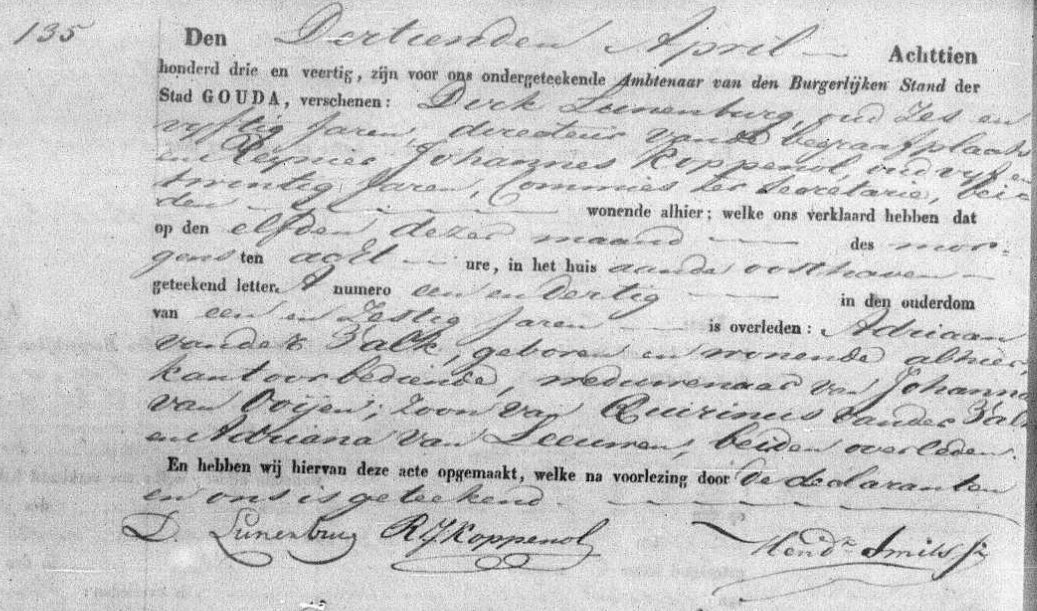 135
Den Dertienden April Achttien
honderd drie en veertig, zijn voor ons ondergeteekende Ambtenaar van den Burgerlijken Stand der
Stad GOUDA, verschenen: Dirk Lunenburg, oud Zes en
vyftig Jaren, directeur vande begraafplaats
en Reynier Johannes Koppenol, oud vyf en
twintig Jaren, Commies ter Secretarie, bei-
den wonende alhier; welke ons verklaard hebben dat
op den elfden dezer maand des mor-
gens ten acht ure, in het huis aande oosthaven
geteekend letter A numero een en dertig in den ouderdom
van een en Zestig Jaren is overleden: Adriaan
vander Valk, geboren en wonende alhier,
kantoorbediende, weduwenaar van Johanna
van Ooijen; Zoon van Quirinus vander Valk
en Adriana van Leeuwen, beiden overleden.
En hebben wij hiervan deze acte opgemaakt, welke na voorlezing door de declaranten
en ons is geteekend.
D. Lunenburg RJ Koppenol Hendk Smits Jz